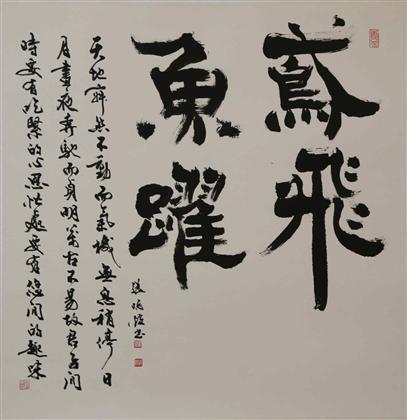 鳶飛
魚躍
天地寂然不動而氣機無息稍停日
月晝夜奔馳而貞明萬古不易故君子閒
時要有吃緊的心思忙處要有悠閒的趣味